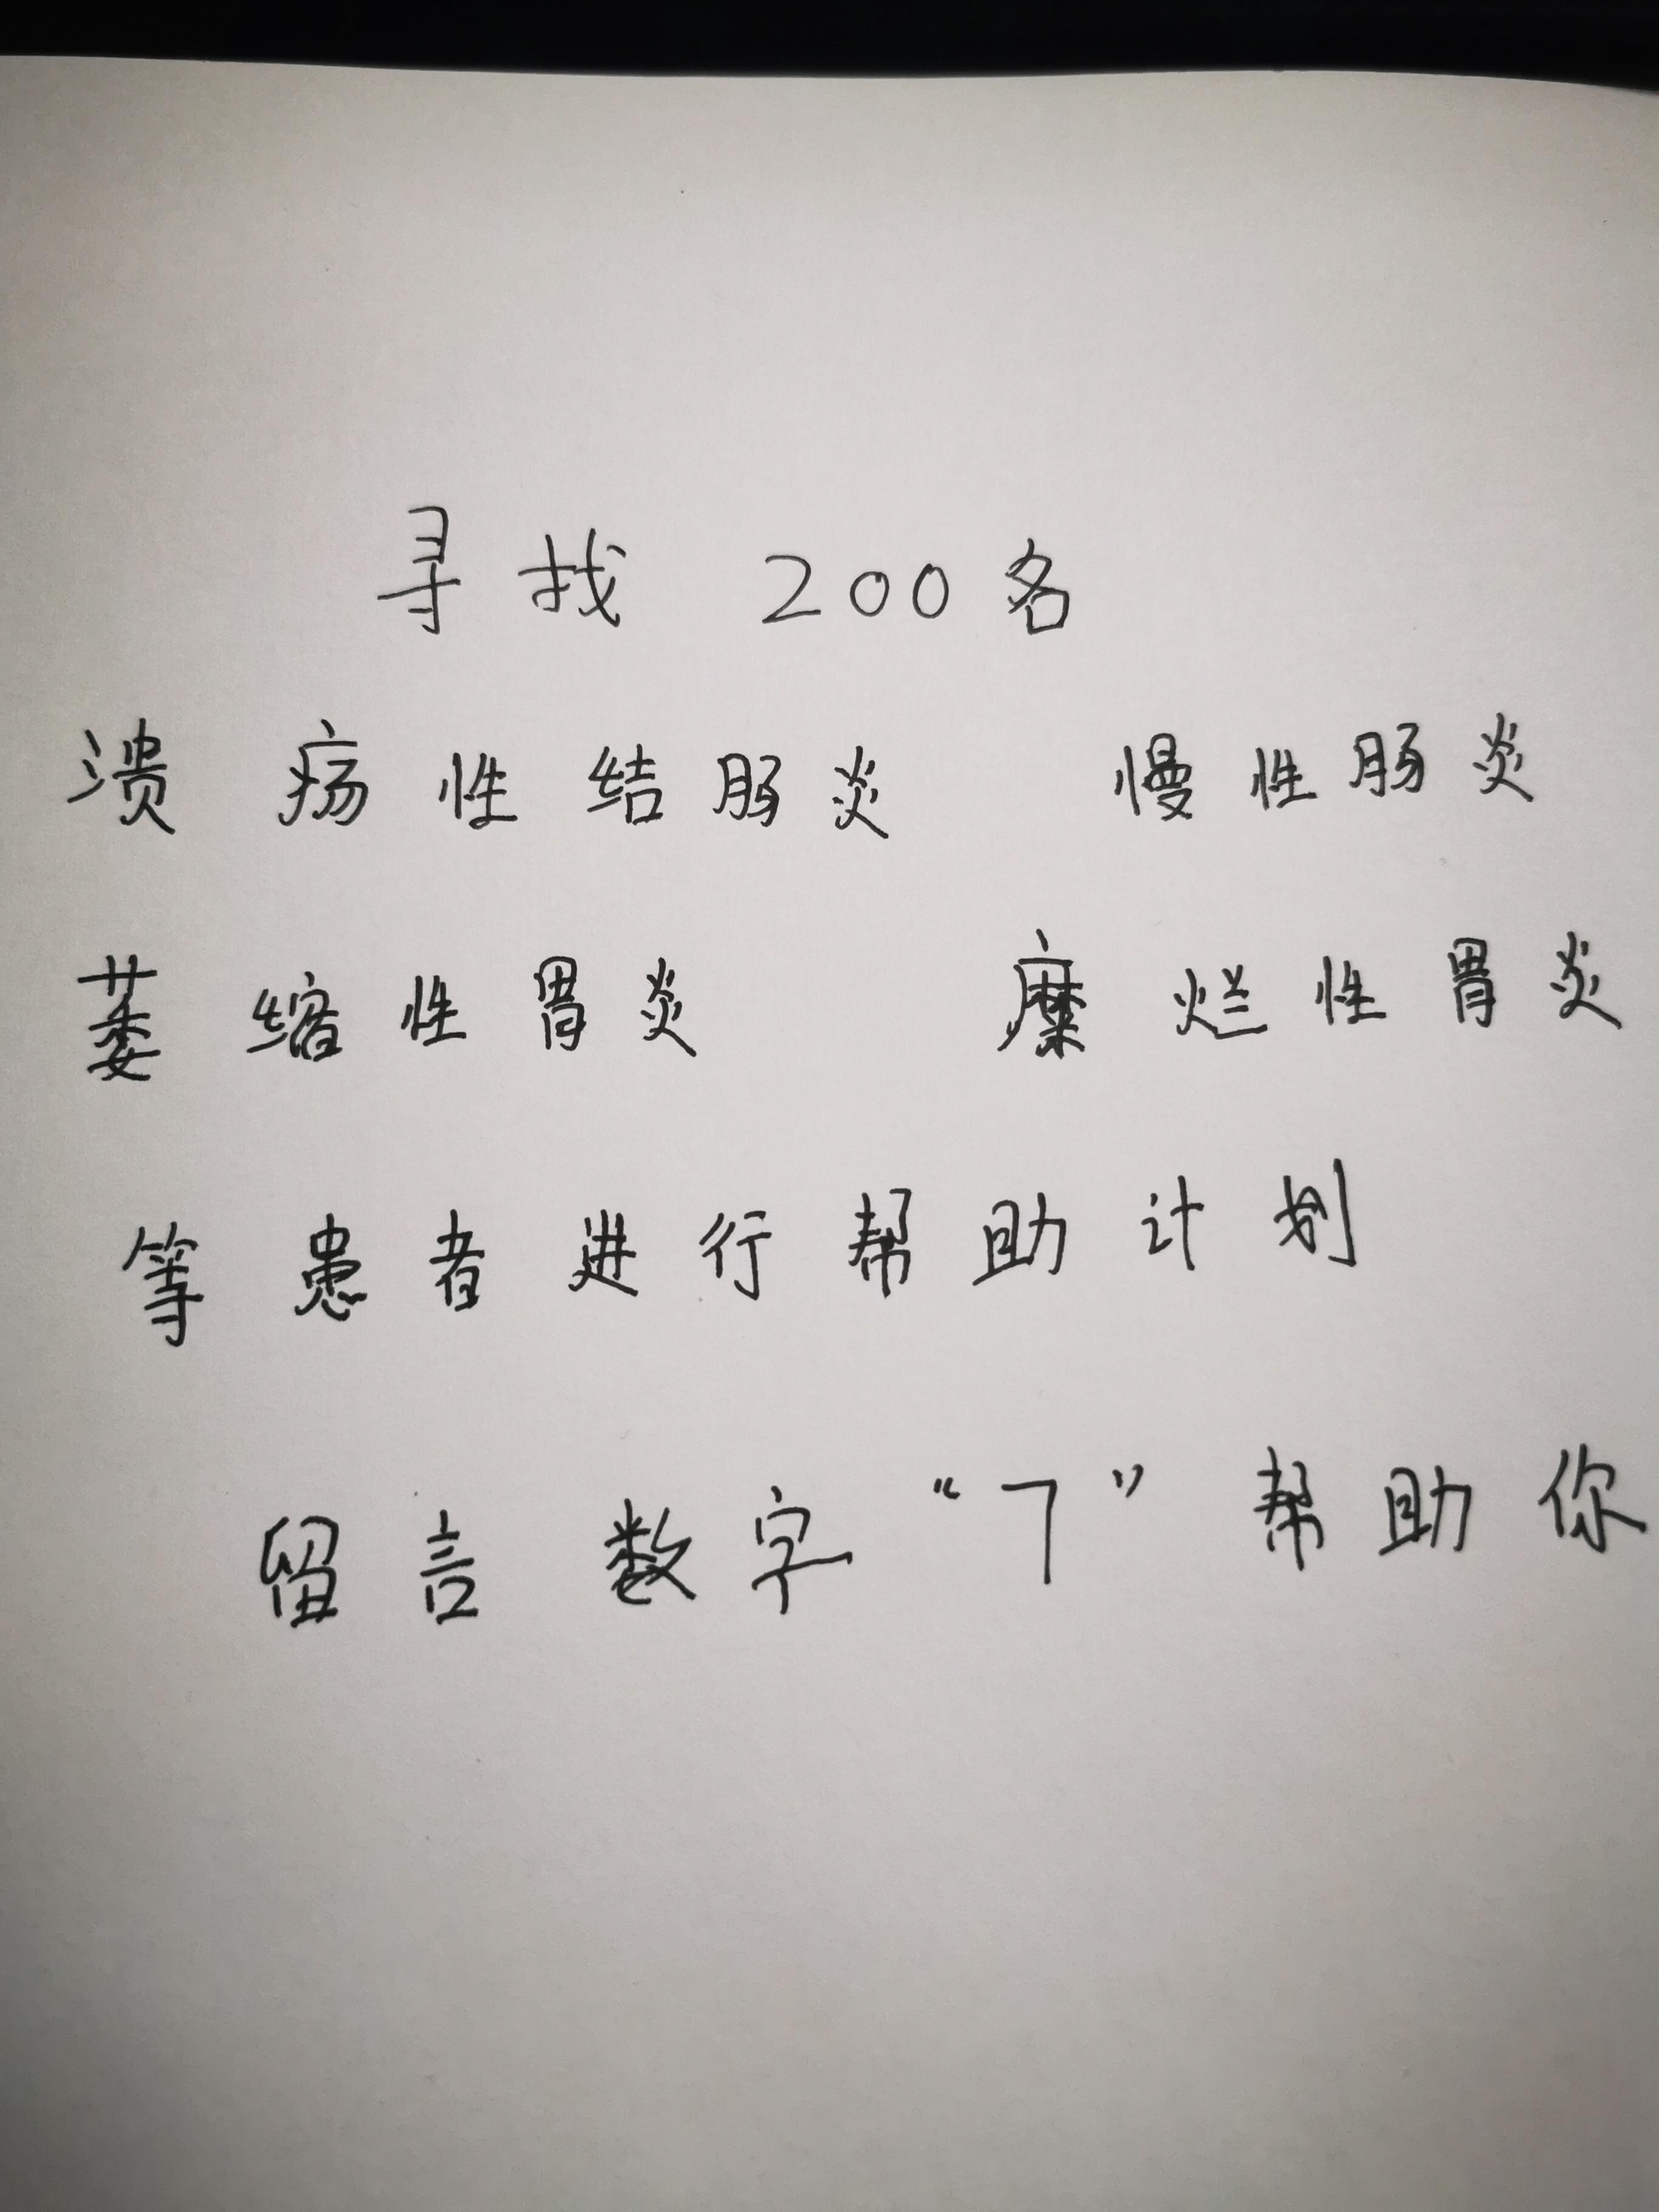 寻找 200名
溃疡性结肠炎 慢性肠炎
萎缩性胃炎 糜烂性胃炎
等患者进行帮助计划
留言数字“7”帮助你